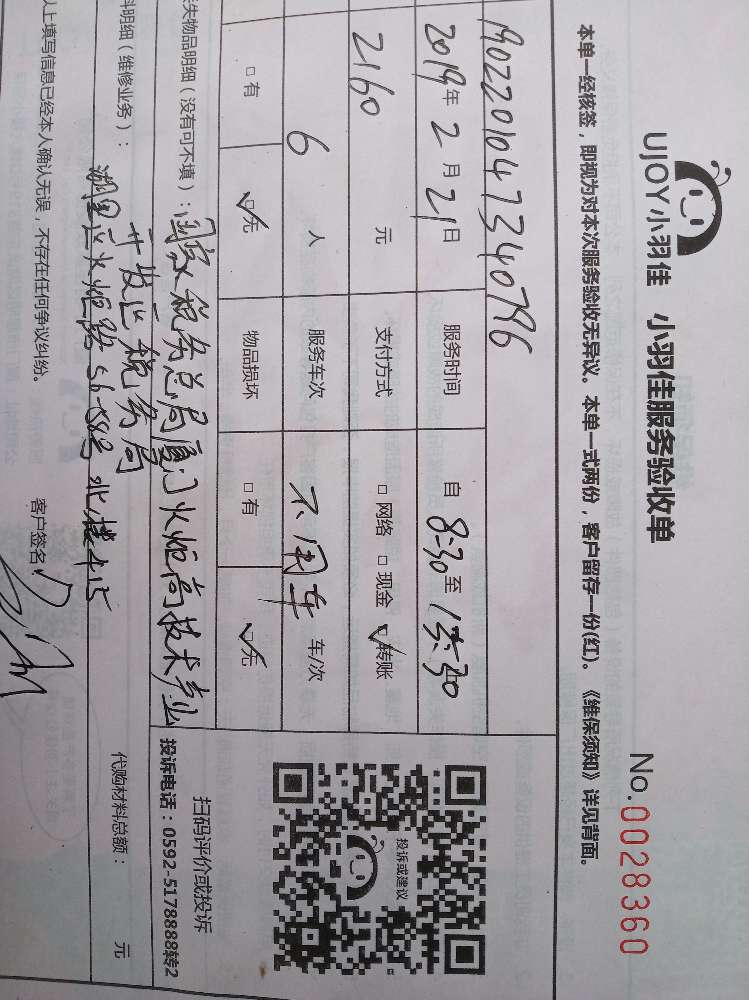 UJOY小羽佳 小羽佳服务验收单 No.0028360
本单一经核签，即视为对本次服务验收无异议。本单一式两份，客户留存一份(红)。《维保须知》详见背面。
1902201047340796
2019年2月21日 服务时间 自 8:30 至 15:30
2160 元 支付方式 □网络 □现金 ☑转账
6 人 服务车次 不用车 车/次
□有 ☑无 物品损坏 □有 ☑无
投诉或建议
扫码评价或投诉
投诉电话：0592-5178888转2
失物品明细（没有可不填）：国家税务总局厦门火炬高技术产业
开发区税务局
料明细（维修业务）： 代购材料总额： 元
湖里区火炬路56-58号北楼415
以上填写信息已经本人确认无误，不存在任何争议纠纷。 客户签名：